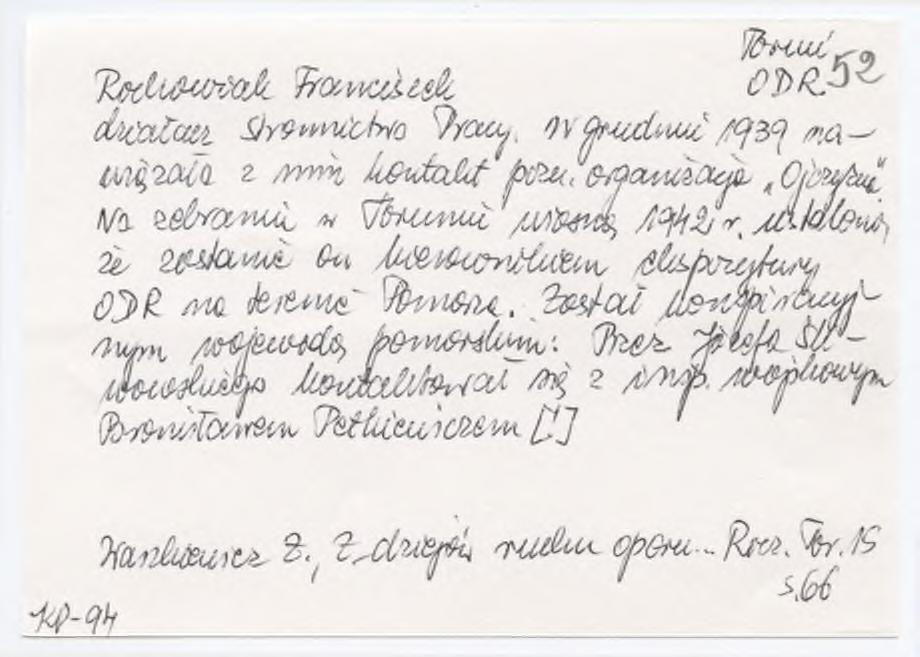 Toruń
ODR. 52
Rochowiak Franciszek
działacz Stronnictwa Pracy. W grudniu 1939 na-
wiązała z nim kontakt pozn. organizacja „Ojczyzna”
Na zebraniu w Toruniu wiosną 1942 r. ustalono,
że zostanie on kierownikiem ekspozytury
ODR na terenie Pomorza. Został konspiracyj-
nym wojewodą pomorskim. Przez Józefa Śli-
wowskiego kontaktował się z insp. wojskowym
Bronisławem Pietkiewiczem [!]
Waszkiewicz Z., Z dziejów ruchu oporu... Rocz. Tor. 15
s. 66
KP-94